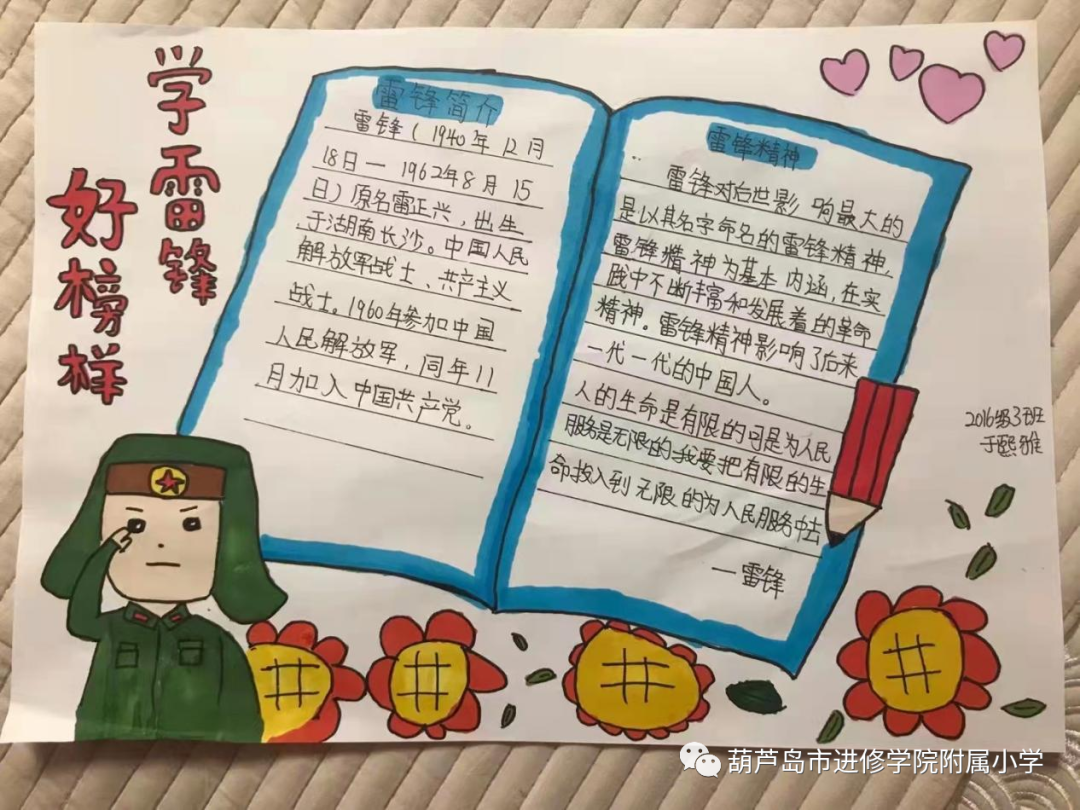 学雷锋
好榜样
雷锋简介
雷锋（1940年12月
18日一1962年8月15
日）原名雷正兴，出生
于湖南长沙。中国人民
解放军战士、共产主义
战士。1960年参加中国
人民解放军，同年11
月加入中国共产党。
雷锋精神
雷锋对后世影响最大的
是以其名字命名的雷锋精神.
雷锋精神为基本内涵,在实
践中不断丰富和发展着的革命
精神。雷锋精神影响了后来
一代一代的中国人。
人的生命是有限的可是为人民
服务是无限的.我要把有限的生
命投入到无限的为人民服务中去
一雷锋
2016级3班
于熙雅
葫芦岛市进修学院附属小学